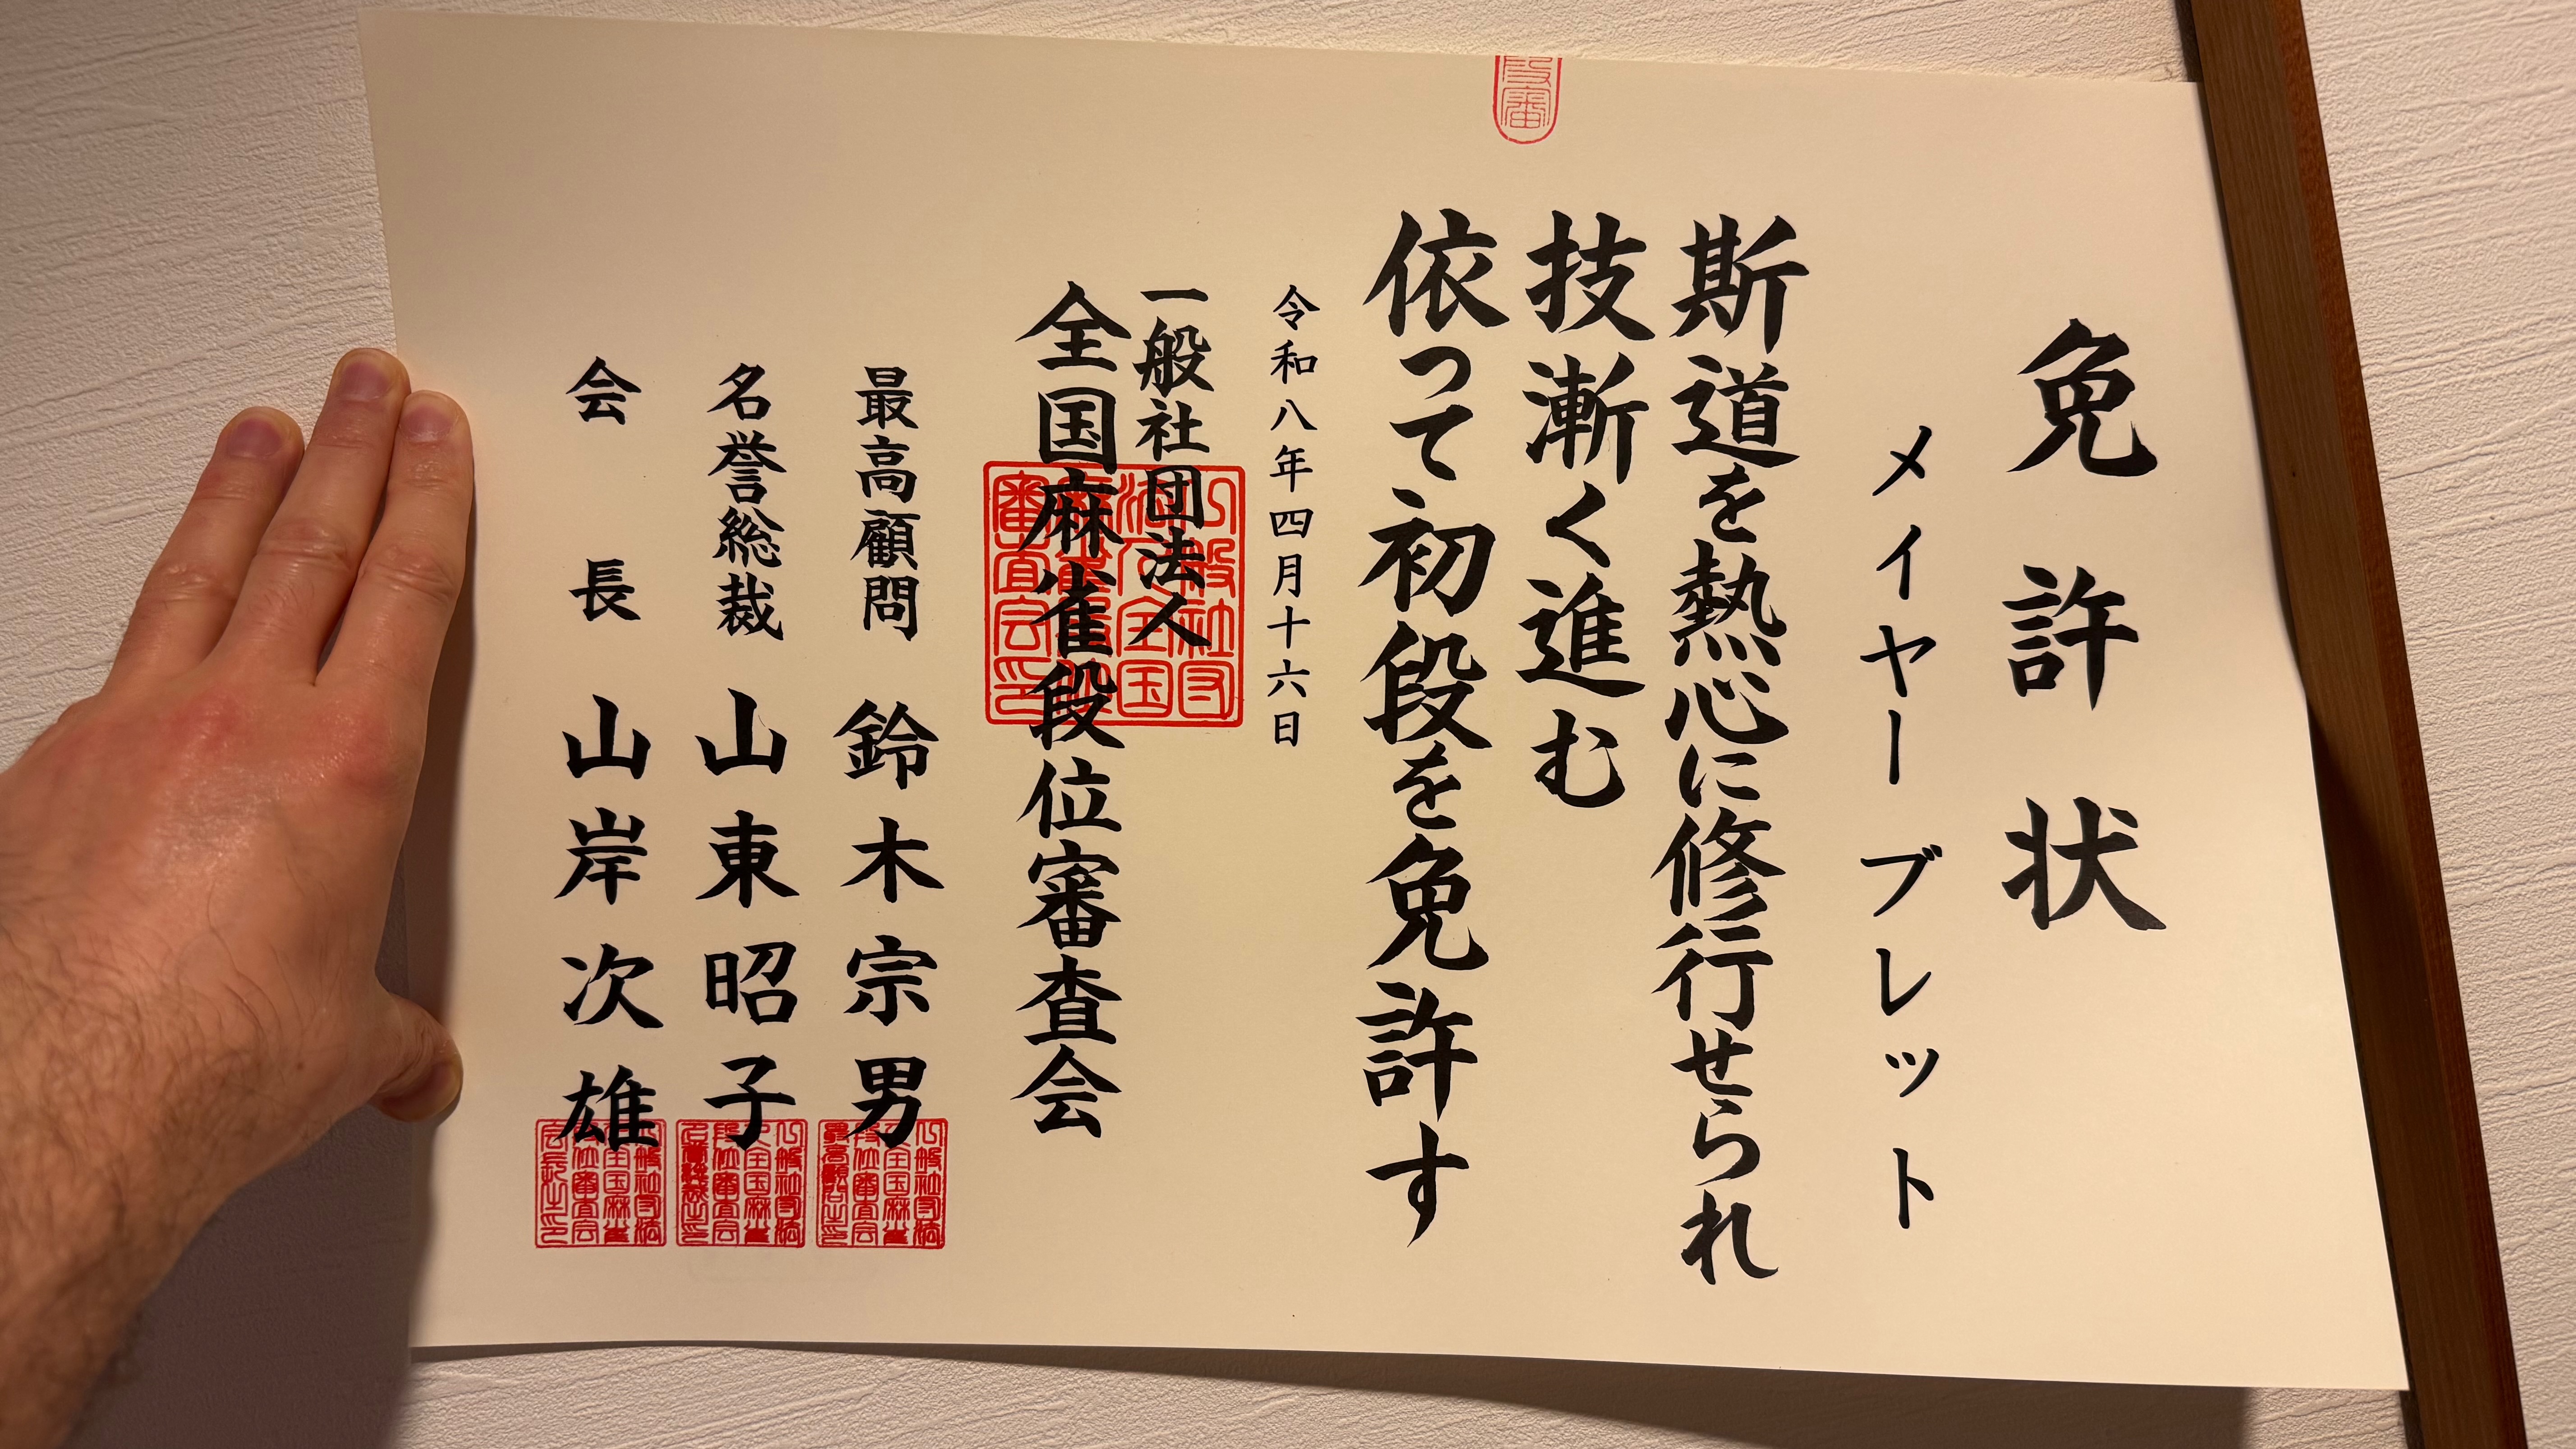 免許状
メイヤー ブレット
斯道を熱心に修行せられ
技漸く進む
依って初段を免許す
令和八年四月十六日
一般社団法人
全国麻雀段位審査会
最高顧問 鈴木宗男
名誉総裁 山東昭子
会長 山岸次雄